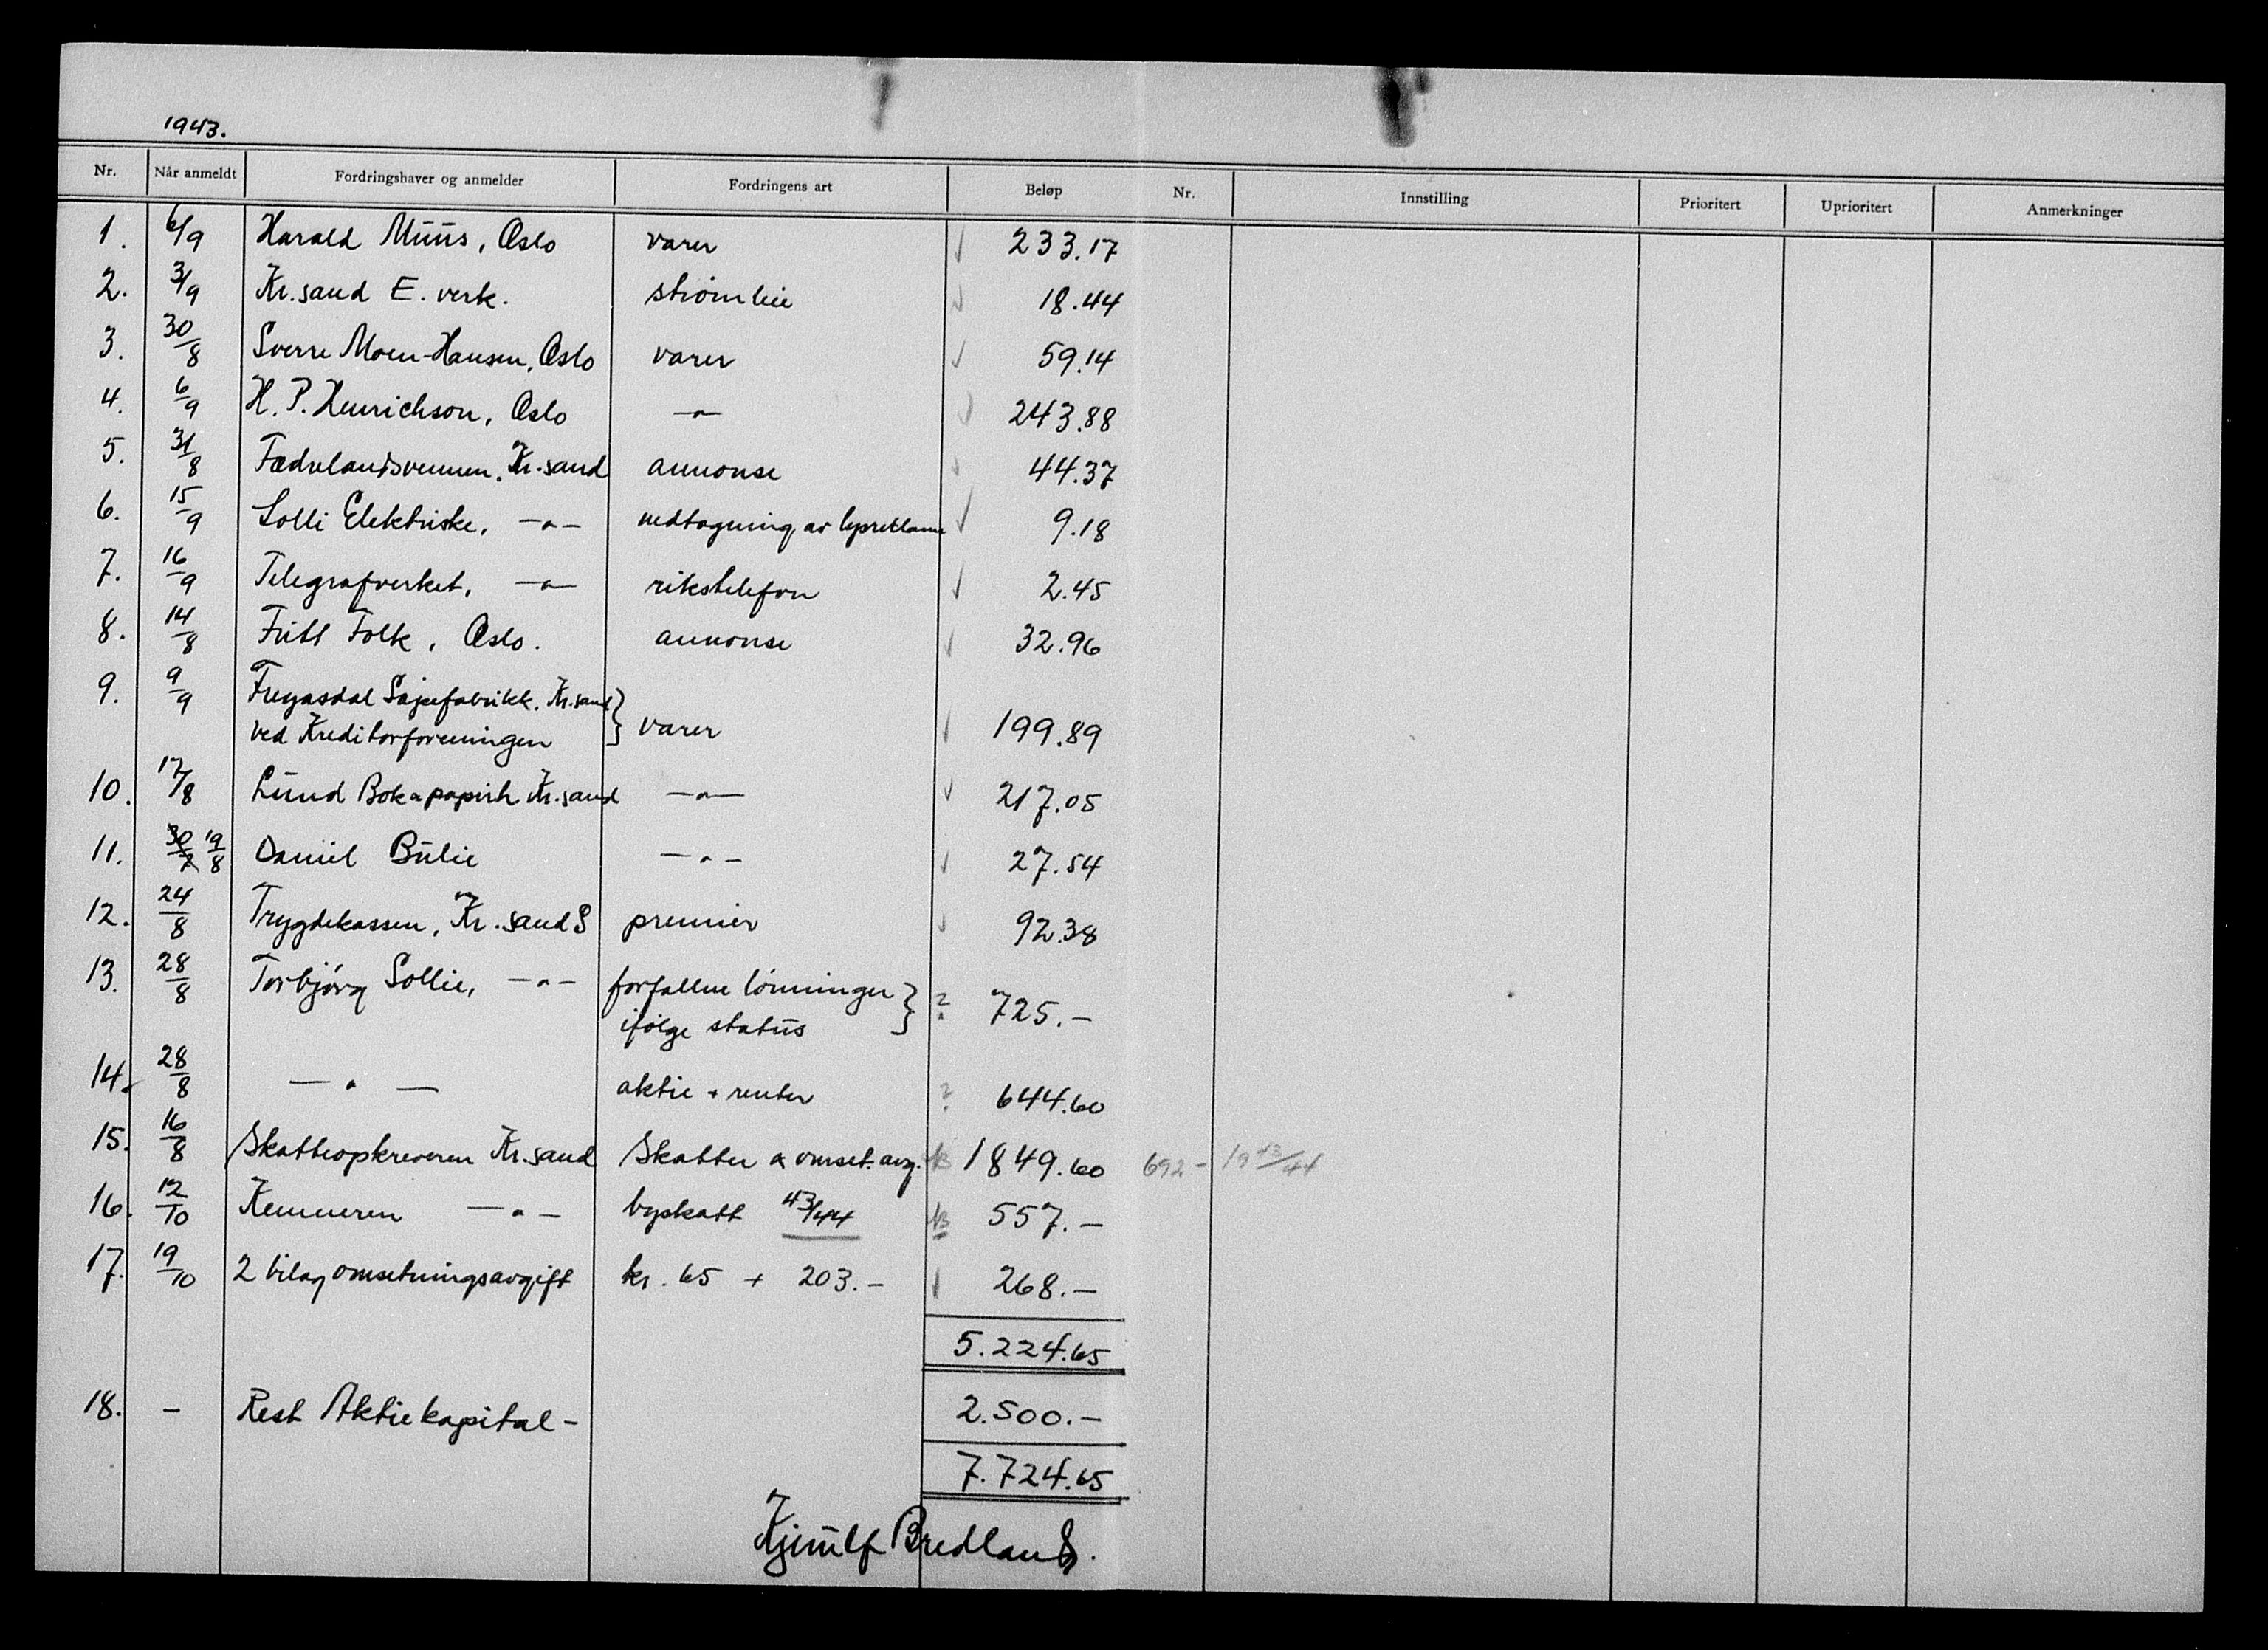 1943.
Nr. Når anmeldt Fordringshaver og anmelder Fordringens art Beløp Nr. Innstilling Prioritert Uprioritert Anmerkninger
1. 6/9 Harald Muus, Oslo varer √ 233.17
2. 3/9 Kr.sand E. verk. strømleie √ 18.44
3. 30/8 Sverre Moen-Hansen, Oslo varer √ 59.14
4. 6/9 H. P. Henrichson, Oslo —"— √ 243.88
5. 31/8 Fædrelandsvennen, Kr.sand annonse √ 44.37
6. 15/9 Solli Elektriske, —"— nedtagning av lysreklame √ 9.18
7. 16/9 Telegrafverket, —"— rikstelefon √ 2.45
8. 14/8 Fritt Folk, Oslo. annonse √ 32.96
9. 9/9 Freyasdal Såpefabrikk, Kr.sand
ved Kreditorforeningen } varer √ 199.89
10. 17/8 Lund Bok & papirh Kr.sand —"— √ 217.05
11. 30/7 19/8 Daniel Bulie —"— √ 27.54
12. 24/8 Trygdekassen, Kr.sand S premier √ 92.38
13. 28/8 Torbjørg Sollie, —"— forfallne lønninger
ifølge status } ? 725.—
14. 28/8 —"— aktie + renter ? 644.60
15. 16/8 Skatteopkreveren Kr.sand Skatter & omset. avg. NB 1849.60 692 - 1943/44
16. 12/10 Kemneren —"— byskatt 43/44 NB 557.—
17. 19/10 2 bilag omsetningsavgift kr. 65 + 203.— √ 268.—
5.224.65
18. — Rest Aktiekapital — 2.500.—
7.724.65
Kjeulf Bredland.